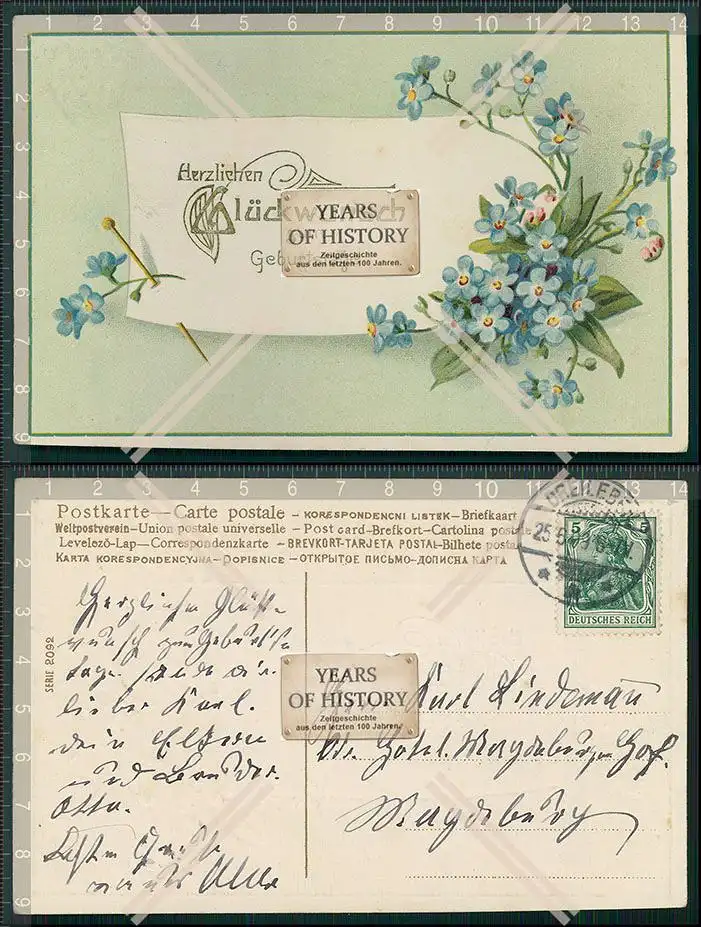 1 2 3 4 5 6 7 8 9 10 11 12 13 14
1
2
3
4
5
6
7
8
9
Herzlichen
Glückwunsch
Geburtstag
YEARS
OF HISTORY
Zeitgeschichte
aus den letzten 100 Jahren.
1 2 3 4 5 6 7 8 9 10 11 12 13 14
1
2
3
4
5
6
7
8
9
Postkarte—Carte postale – KORESPONDENCNI LISTEK–Briefkaart
Weltpostverein–Union postale universelle – Post card–Brefkort–Cartolina postale
Levelező-Lap–Correspondenzkarte – BREVKORT-TARJETA POSTAL–Bilhete postal
KARTA KORESPONDENCYJNA–DOPISNICE–ОТКРЫТОЕ ПИСЬМО–ДОПИСНА КАРТА
5 5
DEUTSCHES REICH
SERIE 2092
Herzlichen Glück-
wunsch zum Geburts-
tage sende dir
lieber Karl.
dein Eltern
und Bruder
Otto.
YEARS
OF HISTORY
Zeitgeschichte
aus den letzten 100 Jahren.
Karl Lindemann
Hotel Magdeburger Hof.
Magdeburg